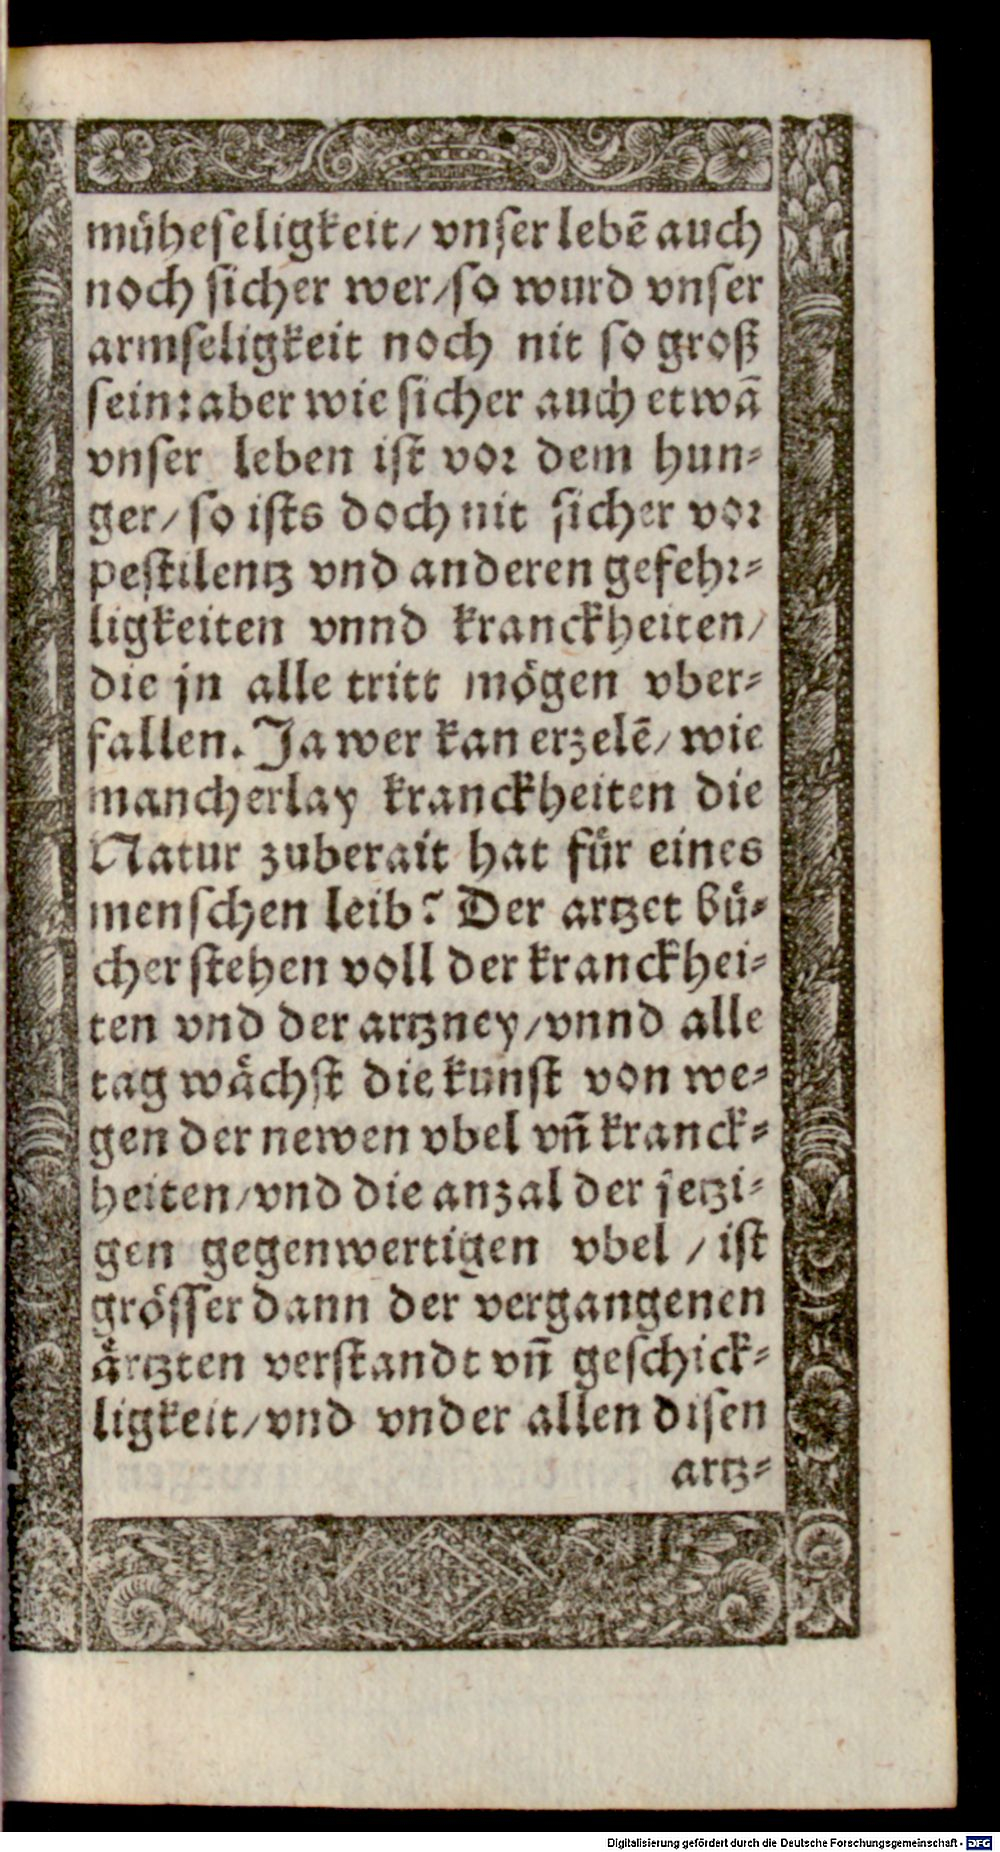 müheseligkeit/ vnser lebē auch
noch sicher wer/so wurd vnser
armseligkeit noch nit so groß
sein: aber wie sicher auch etwā
vnser leben ist vor dem hun-
ger/ so ists doch nit sicher vor
pestilentz vnd anderen gefehr-
ligkeiten vnnd kranckheiten/
die jn alle tritt mögen vber-
fallen. Ja wer kan erzelē/ wie
mancherlay kranckheiten die
Natur zuberait hat für eines
menschen leib? Der artzet bü-
cher stehen voll der kranckhei-
ten vnd der artzney/vnnd alle
tag wächst die kunst von we-
gen der newen vbel vñ kranck-
heiten/vnd die anzal der jetzi-
gen gegenwertigen vbel / ist
grösser dann der vergangenen
ärtzten verstandt vñ geschick-
ligkeit/vnd vnder allen disen
artz-
Digitalisierung gefördert durch die Deutsche Forschungsgemeinschaft - DFG